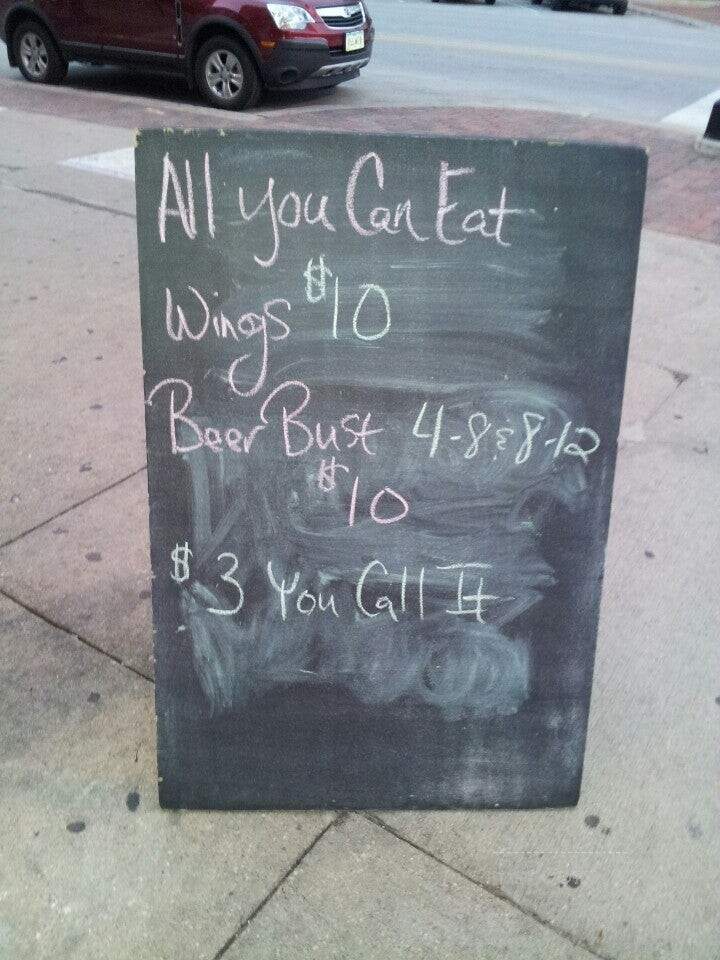 All you Can Eat
Wings $10
Beer Bust 4-8 & 8-12
$10
$3 You Call It